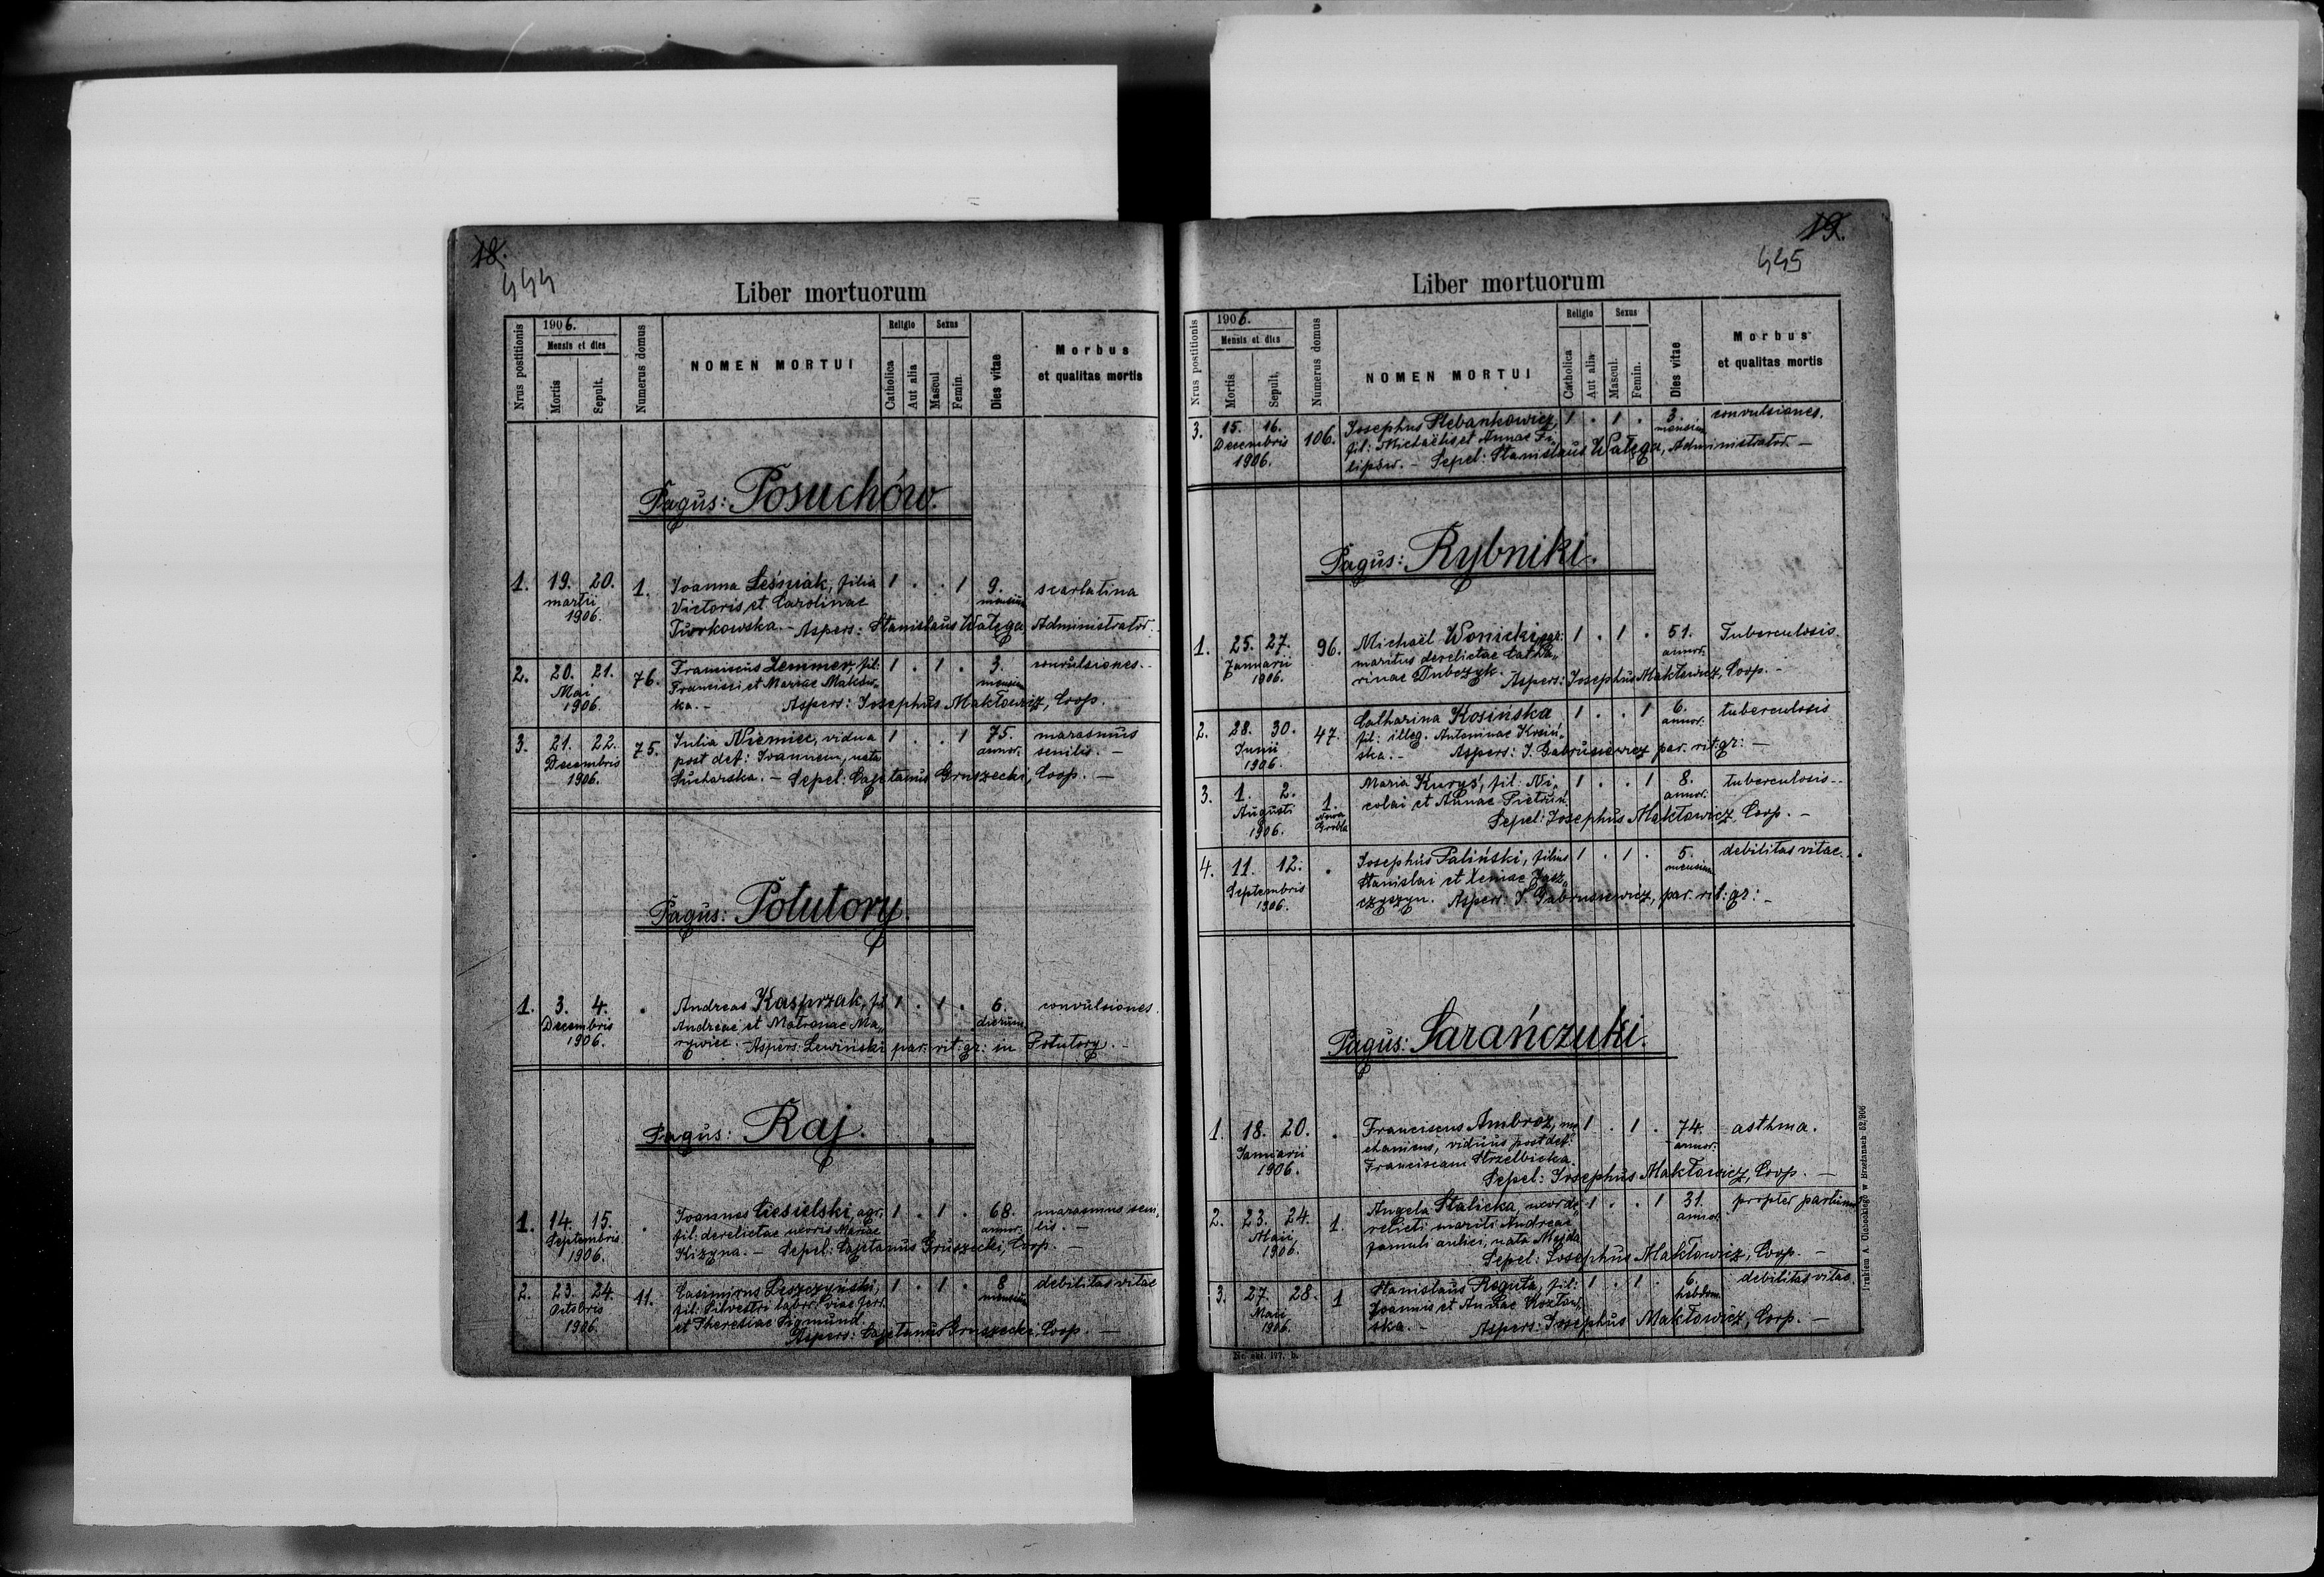 18.
444
Liber mortuorum
Nrus postitionis
1906.
Mensis et dies
Mortis
Sepult.
Numerus domus
NOMEN MORTUI
Religio
Catholica
Aut alia
Sexus
Mascul
Femin.
Dies vitae
Morbus
et qualitas mortis
Pagus: Posuchów.
1. 19. 20. 1. Joanna Leśniak, filia 1 . . 1 9. scarlatina
martii Victoris et Carolinae mensium
1906. Turkowska. - Aspers: Stanislaus Wałęga Administrator.
2. 20. 21. 76. Franciscus Lemmer, fil: 1 . 1 . 3. convulsiones. -
Mai Francisci et Mariae Maksów„ mensium
1906. ka. - Aspers: Josephus Makłowicz, Coop.
3. 21. 22. 75. Julia Niemiec, vidua 1 . . 1 75. marasmus
Decembris post def: Joannem, nata annor. senilis. -
1906. Sucharska. - Sepel: Cajetanus Gruszecki, Coop. -
Pagus: Potutory.
1. 3. 4. . Andreas Kasprzak, fil 1 . 1 . 6. convulsiones.
Decembris Andreae et Matronae Ma„ dierum
1906. rywiec. - Aspers: Lewiński par: rit: gr: in Potutory. -
Pagus: Raj.
1. 14. 15. . Joannes Ciesielski, agr. 1 . 1 . 68. marasmus seni„
Septembris fil: derelictae uxoris Mariae annor. lis. -
1906. Kizyna. - Sepel: Cajetanus Gruszecki, Coop. -
2. 23. 24. 11. Casimirus Leszczyński, 1 . 1 . 8 debilitas vitae
Octobris fil: Silvestri labor: viae ferr. mensium
1906. et Theresiae Sigmund.
Aspers: Cajetanus Gruszecki, Coop. -
19.
445
Liber mortuorum
Nrus postitionis
1906.
Mensis et dies
Mortis
Sepult.
Numerus domus
NOMEN MORTUI
Religio
Catholica
Aut alia
Sexus
Mascul.
Femin.
Dies vitae
Morbus
et qualitas mortis
3. 15. 16. 106. Josephus Stebankowicz, 1 . 1 . 3. convulsiones.
Decembris fil: Michaëlis et Annae Fi„ mensium
1906. lipów. - Sepel: Stanislaus Wałęga, Administrator. -
Pagus: Rybniki.
1. 25. 27. 96. Michaël Wonicki, agr: 1 . 1 . 51. Tuberculosis.
Januarii maritus derelictae Catha„ annor.
1906. rinae Dubczyk. Aspers: Josephus Makłowicz, Coop. -
2. 28. 30. 47. Catharina Kosińska, 1 . . 1 6. tuberculosis
Junii fil: illeg. Antoninae Kosiń„ annor.
1906. ska. - Aspers: J. Gabrusiewicz par. rit: gr: -
3. 1. 2. 1. Maria Kuryś, fil: Ni„ 1 . . 1 8. tuberculosis. -
Augusti Nowa Grobla colai et Annae Pietrun. annor.
1906. Sepel: Josephus Makłowicz, Coop. -
4. 11. 12. . Josephus Paliński, filius 1 . 1 . 5. debilitas vitae.
Septembris Stanislai et Xeniae Jasz„ mensium
1906. czyszyn. Aspers: J. Gabrusiewicz, par. rit: gr: -
Pagus: Sarańczuki.
1. 18. 20. . Franciscus Ambroz, me 1 . 1 . 74. asthma.
Januarii chanicus, viduus post def: annor.
1906. Franciscam Strzelbicka.
Sepel: Josephus Makłowicz, Coop. -
2. 23. 24. 1. Angela Stalicka, uxor de„ 1 . . 1 31. propter partum
Maii, relicti mariti Andreae annor.
1906. famuli aulici, nata Majda
Sepel: Josephus Makłowicz, Coop. -
3. 27. 28. 1 Stanislaus Reguta, fil: 1 . 1 . 6. debilitas vitae.
Maii Joannis et Annae Kozłow„ hebdom.
1906. ska. - Aspers: Josephus Makłowicz, Coop. -
Nr. skł. 197. b.
Drukiem A. Cichockiego w Brzeżanach 52/906